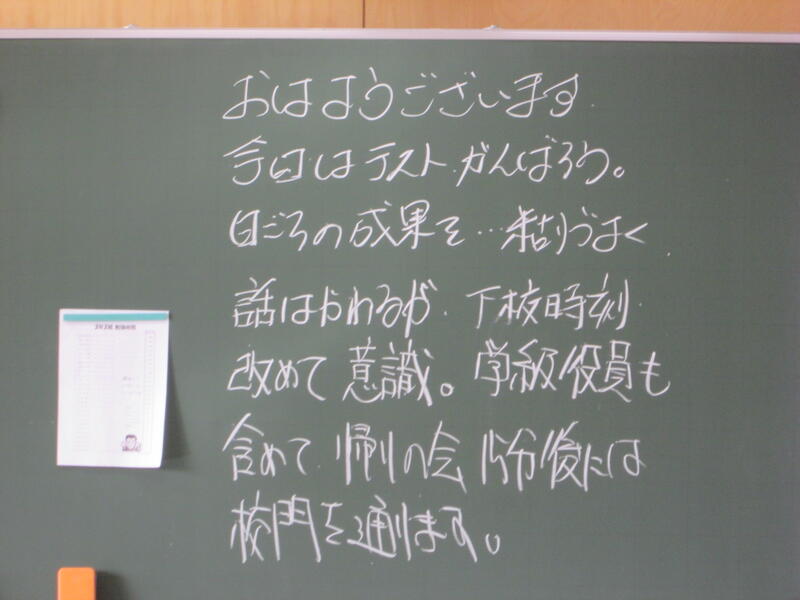 おはようございます
今日はテスト がんばろう。
日ごろの成果を…粘りづよく
話はかわるが 下校時刻
改めて意識。学級役員も
含めて 帰りの会 15分後には
校門を通ります。